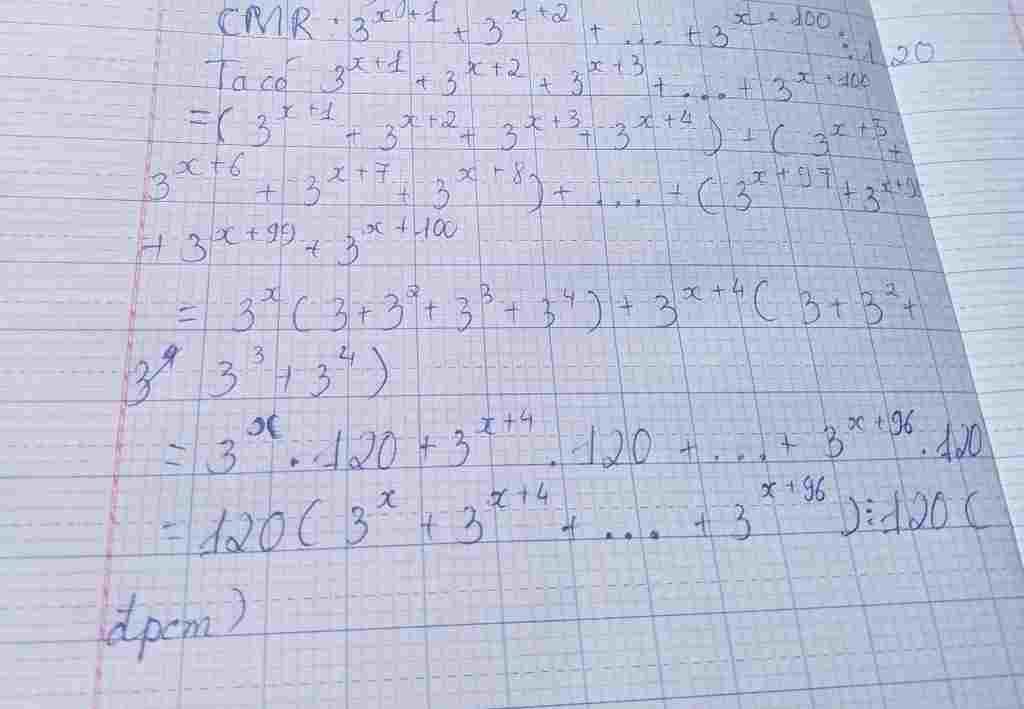 CMR : 3^{x+1} + 3^{x+2} + ... + 3^{x+100} ⋮ 120
Ta có 3^{x+1} + 3^{x+2} + 3^{x+3} + ... + 3^{x+100}
= ( 3^{x+1} + 3^{x+2} + 3^{x+3} + 3^{x+4} ) + ( 3^{x+5} +
3^{x+6} + 3^{x+7} + 3^{x+8} ) + ... + ( 3^{x+97} + 3^{x+9
+ 3^{x+99} + 3^{x+100}
= 3^x ( 3 + 3^2 + 3^3 + 3^4 ) + 3^{x+4} ( 3 + 3^2 +
3^3 + 3^4 )
= 3^x . 120 + 3^{x+4} . 120 + ... + 3^{x+96} . 120
= 120 ( 3^x + 3^{x+4} + ... + 3^{x+96} ) ⋮ 120 (
đpcm )